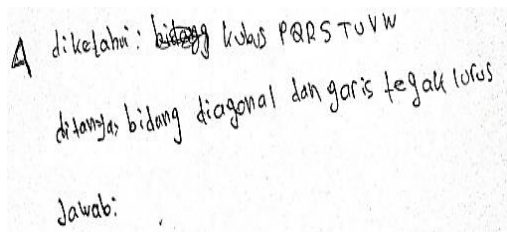 A diketahui: kubus PQRS TUVW
ditanya, bidang diagonal dan garis tegak lurus
Jawab: